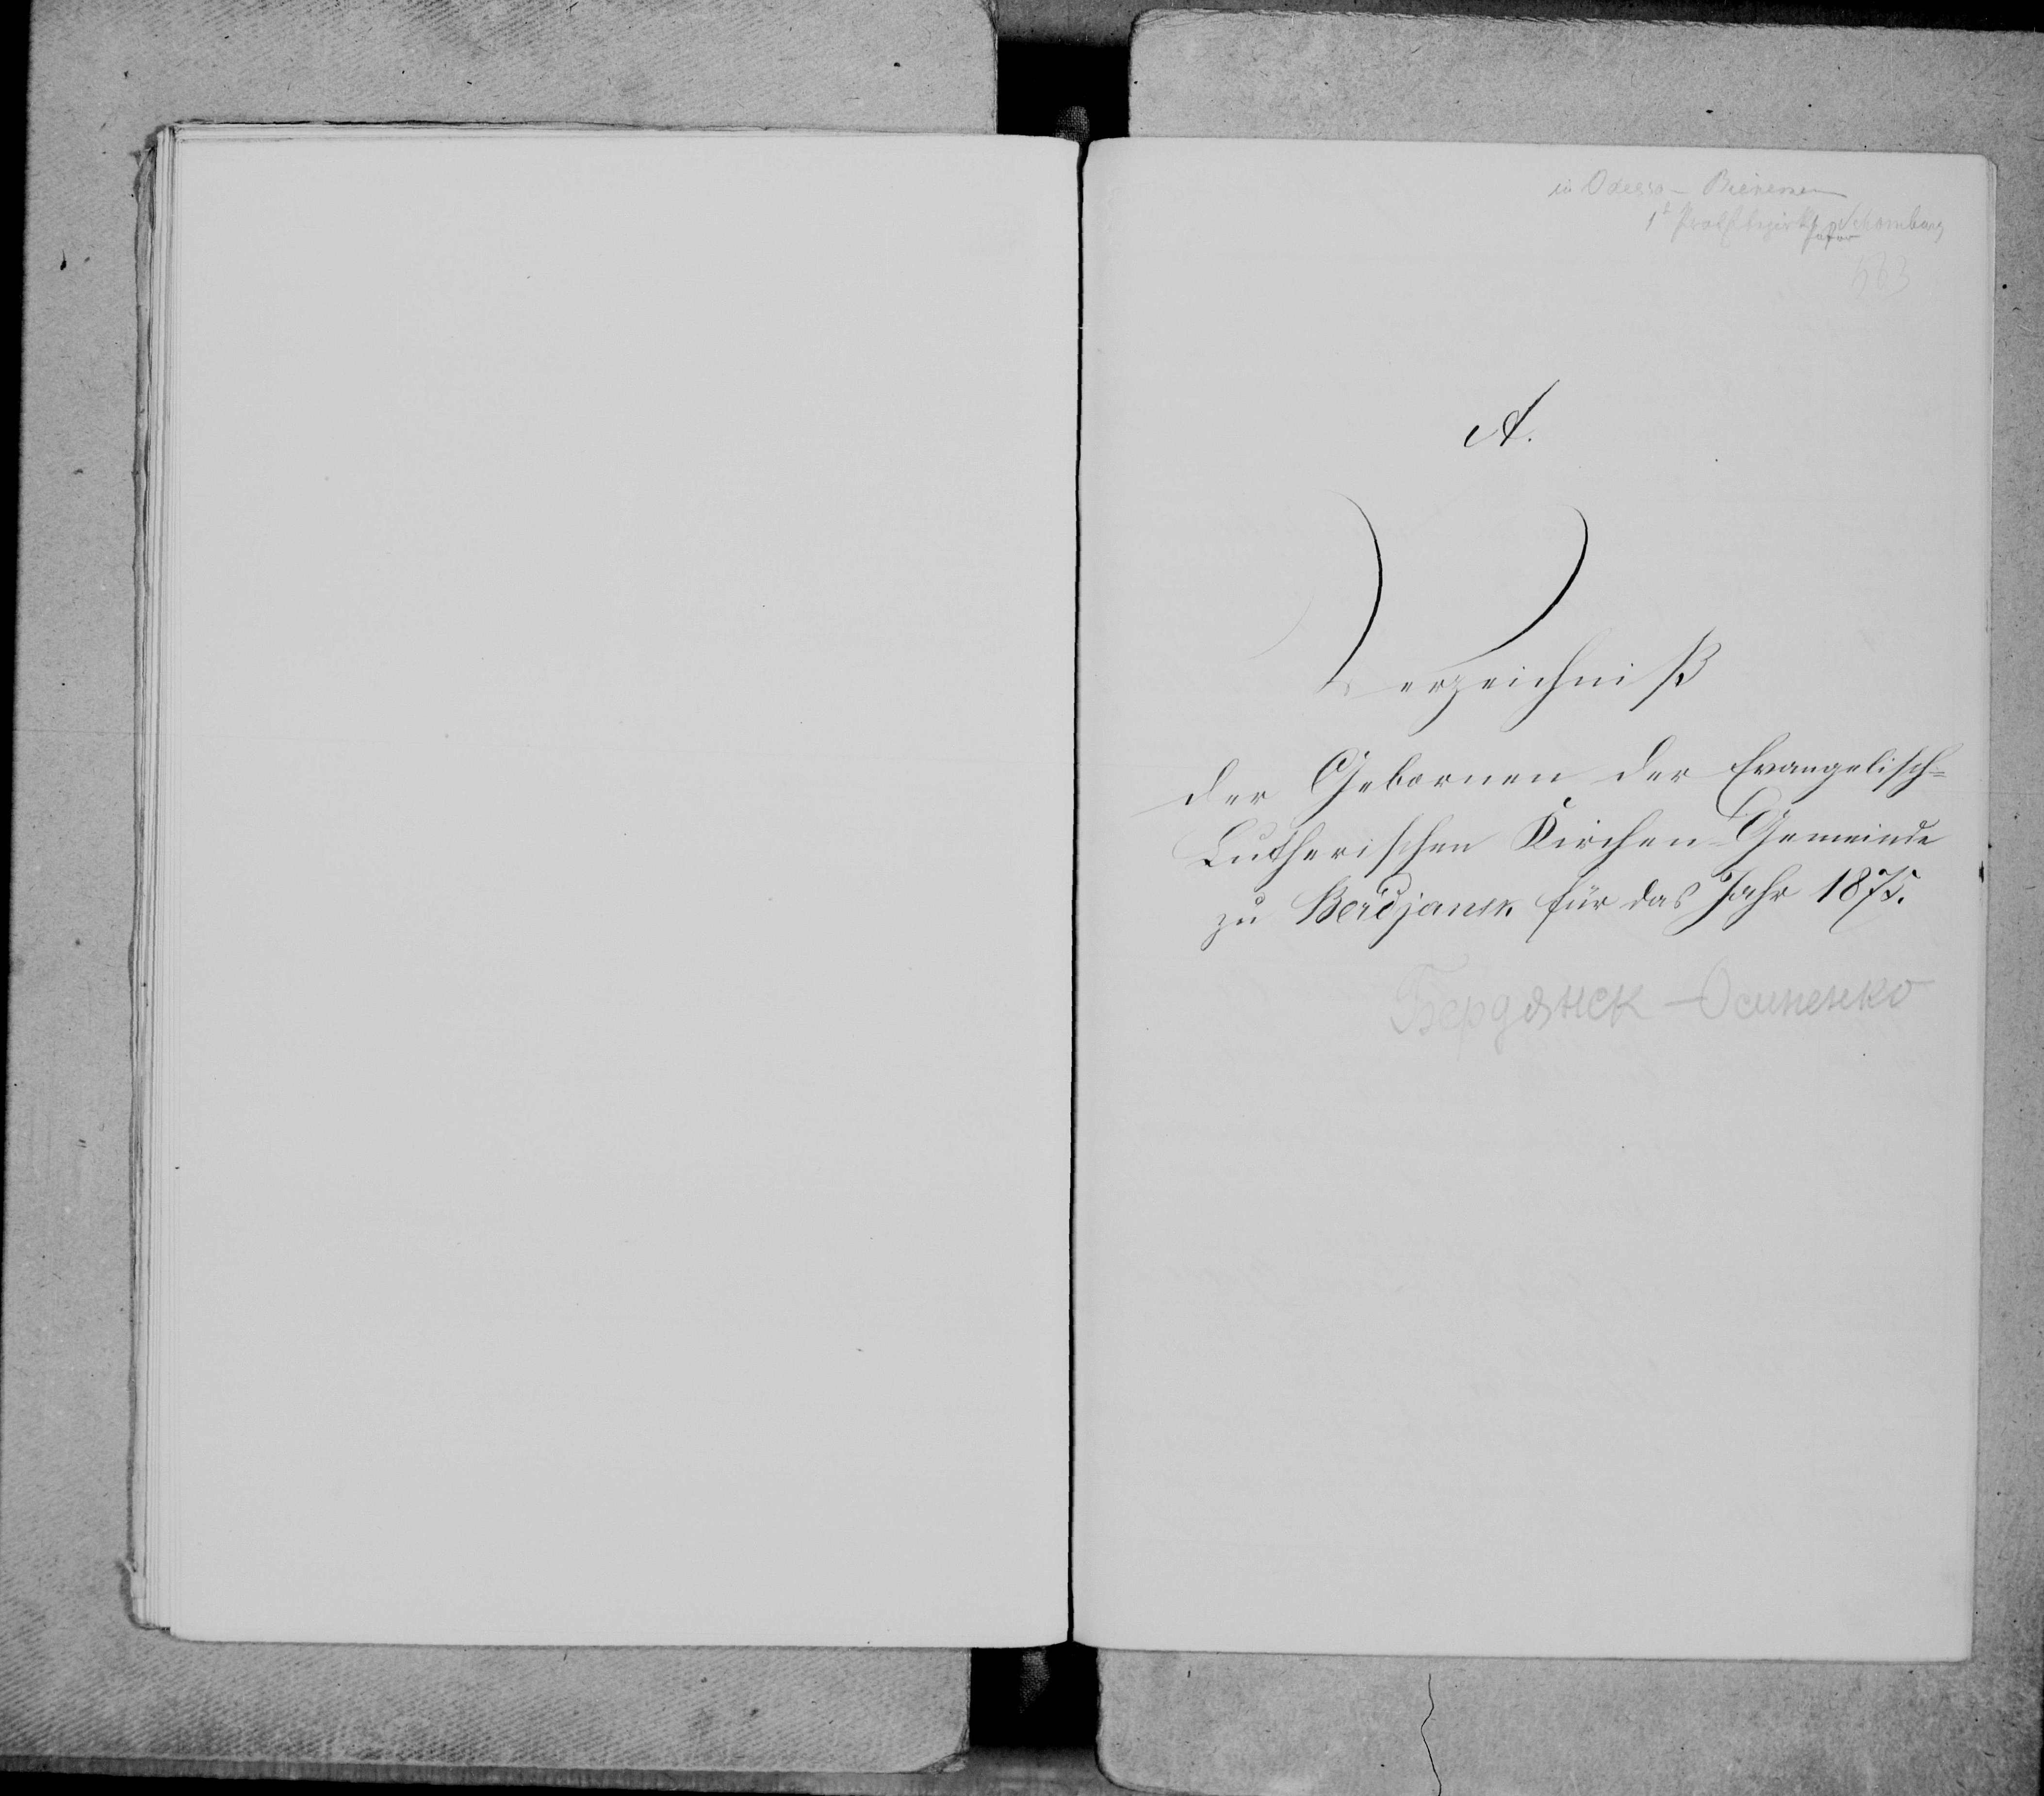 in Odessa – Bienemann
1t Probstbezirk Pastor Schomburg
563
A.
Verzeichniß
der Gebornen der Evangelisch=
Lutherischen Kirchen-Gemeinde
zu Berdjansk für das Jahr 1875.
Бердянск – Осипенко